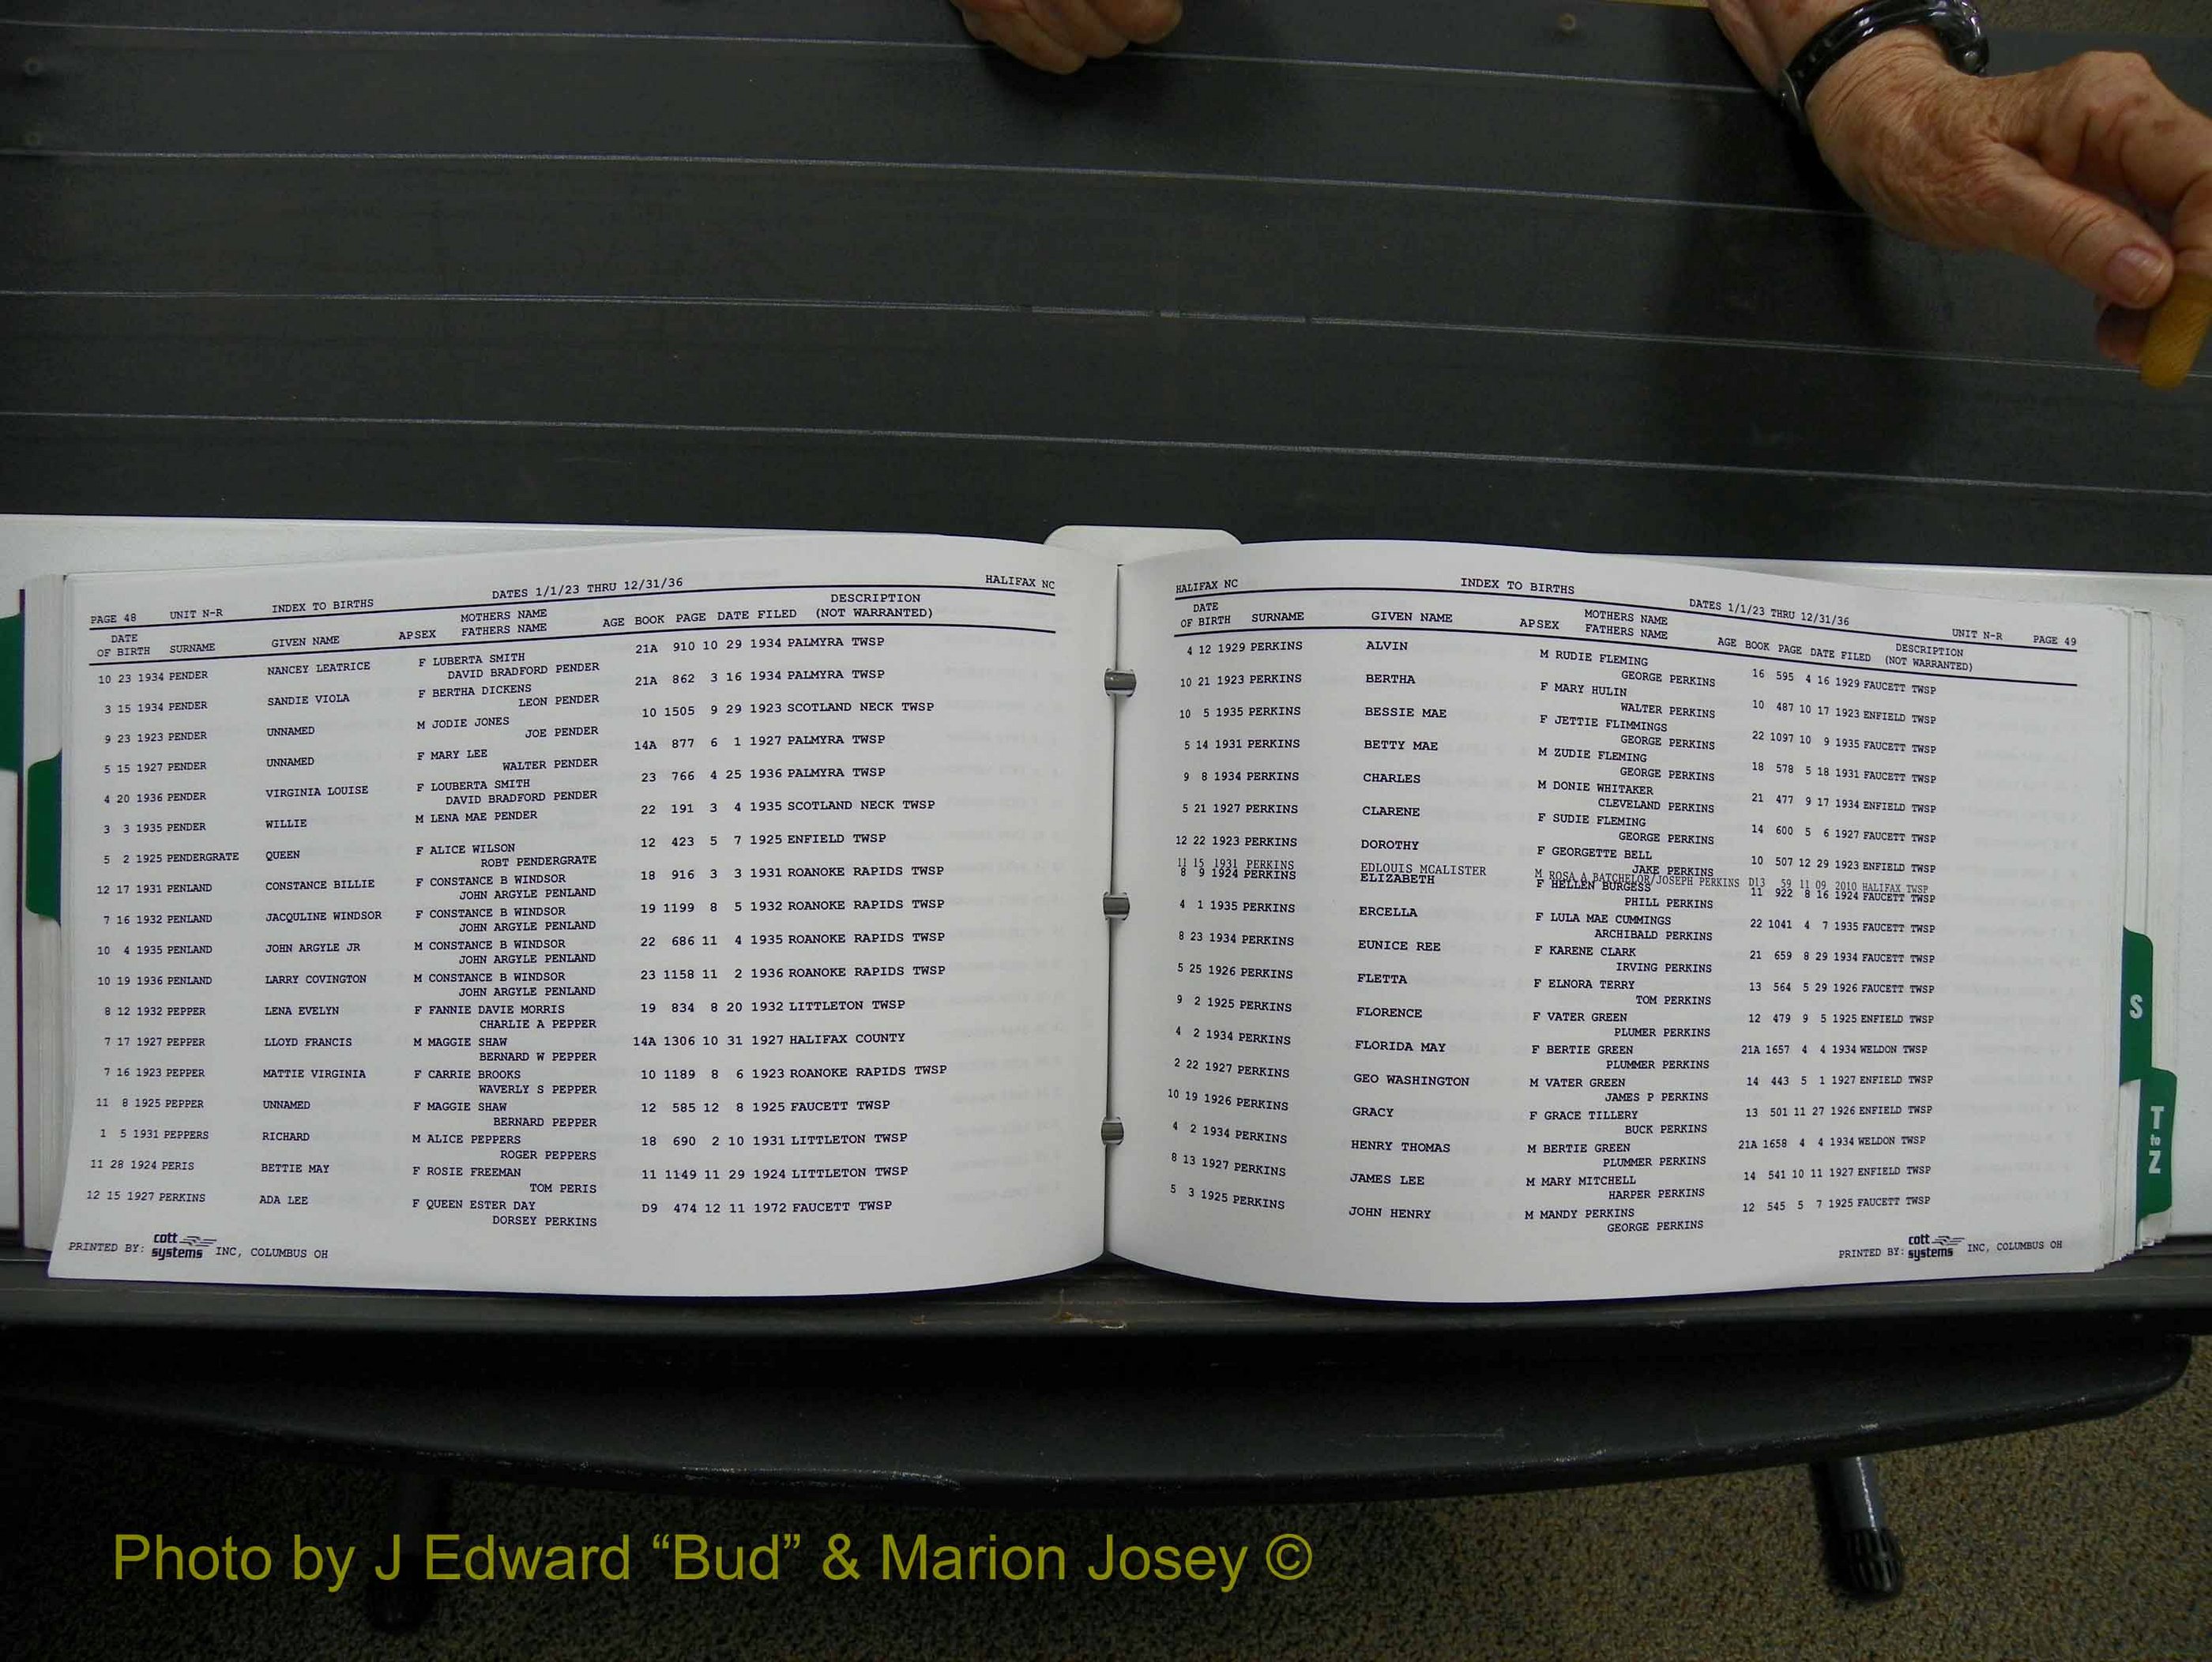 PAGE 48 UNIT N-R INDEX TO BIRTHS DATES 1/1/23 THRU 12/31/36 HALIFAX NC
DATE OF BIRTH SURNAME GIVEN NAME APSEX MOTHERS NAME FATHERS NAME AGE BOOK PAGE DATE FILED DESCRIPTION (NOT WARRANTED)
10 23 1934 PENDER NANCEY LEATRICE F LUBERTA SMITH 21A 910 10 29 1934 PALMYRA TWSP
DAVID BRADFORD PENDER
3 15 1934 PENDER SANDIE VIOLA F BERTHA DICKENS 21A 862 3 16 1934 PALMYRA TWSP
LEON PENDER
9 23 1923 PENDER UNNAMED M JODIE JONES 10 1505 9 29 1923 SCOTLAND NECK TWSP
JOE PENDER
5 15 1927 PENDER UNNAMED F MARY LEE 14A 877 6 1 1927 PALMYRA TWSP
WALTER PENDER
4 20 1936 PENDER VIRGINIA LOUISE F LOUBERTA SMITH 23 766 4 25 1936 PALMYRA TWSP
DAVID BRADFORD PENDER
3 3 1935 PENDER WILLIE M LENA MAE PENDER 22 191 3 4 1935 SCOTLAND NECK TWSP
5 2 1925 PENDERGRATE QUEEN F ALICE WILSON 12 423 5 7 1925 ENFIELD TWSP
ROBT PENDERGRATE
12 17 1931 PENLAND CONSTANCE BILLIE F CONSTANCE B WINDSOR 18 916 3 3 1931 ROANOKE RAPIDS TWSP
JOHN ARGYLE PENLAND
7 16 1932 PENLAND JACQULINE WINDSOR F CONSTANCE B WINDSOR 19 1199 8 5 1932 ROANOKE RAPIDS TWSP
JOHN ARGYLE PENLAND
10 4 1935 PENLAND JOHN ARGYLE JR M CONSTANCE B WINDSOR 22 686 11 4 1935 ROANOKE RAPIDS TWSP
JOHN ARGYLE PENLAND
10 19 1936 PENLAND LARRY COVINGTON M CONSTANCE B WINDSOR 23 1158 11 2 1936 ROANOKE RAPIDS TWSP
JOHN ARGYLE PENLAND
8 12 1932 PEPPER LENA EVELYN F FANNIE DAVIE MORRIS 19 834 8 20 1932 LITTLETON TWSP
CHARLIE A PEPPER
7 17 1927 PEPPER LLOYD FRANCIS M MAGGIE SHAW 14A 1306 10 31 1927 HALIFAX COUNTY
BERNARD W PEPPER
7 16 1923 PEPPER MATTIE VIRGINIA F CARRIE BROOKS 10 1189 8 6 1923 ROANOKE RAPIDS TWSP
WAVERLY S PEPPER
11 8 1925 PEPPER UNNAMED F MAGGIE SHAW 12 585 12 8 1925 FAUCETT TWSP
BERNARD PEPPER
1 5 1931 PEPPERS RICHARD M ALICE PEPPERS 18 690 2 10 1931 LITTLETON TWSP
ROGER PEPPERS
11 28 1924 PERIS BETTIE MAY F ROSIE FREEMAN 11 1149 11 29 1924 LITTLETON TWSP
TOM PERIS
12 15 1927 PERKINS ADA LEE F QUEEN ESTER DAY D9 474 12 11 1972 FAUCETT TWSP
DORSEY PERKINS
PRINTED BY: cott systems INC, COLUMBUS OH
HALIFAX NC INDEX TO BIRTHS DATES 1/1/23 THRU 12/31/36 UNIT N-R PAGE 49
DATE OF BIRTH SURNAME GIVEN NAME APSEX MOTHERS NAME FATHERS NAME AGE BOOK PAGE DATE FILED DESCRIPTION (NOT WARRANTED)
4 12 1929 PERKINS ALVIN M RUDIE FLEMING 16 595 4 16 1929 FAUCETT TWSP
GEORGE PERKINS
10 21 1923 PERKINS BERTHA F MARY HULIN 10 487 10 17 1923 ENFIELD TWSP
WALTER PERKINS
10 5 1935 PERKINS BESSIE MAE F JETTIE FLIMMINGS 22 1097 10 9 1935 FAUCETT TWSP
GEORGE PERKINS
5 14 1931 PERKINS BETTY MAE M ZUDIE FLEMING 18 578 5 18 1931 FAUCETT TWSP
GEORGE PERKINS
9 8 1934 PERKINS CHARLES M DONIE WHITAKER 21 477 9 17 1934 ENFIELD TWSP
CLEVELAND PERKINS
5 21 1927 PERKINS CLARENE F SUDIE FLEMING 14 600 5 6 1927 FAUCETT TWSP
GEORGE PERKINS
12 22 1923 PERKINS DOROTHY F GEORGETTE BELL 10 507 12 29 1923 ENFIELD TWSP
JAKE PERKINS
11 15 1931 PERKINS EDLOUIS MCALISTER M ROSA A BATCHELOR/JOSEPH PERKINS D13 59 11 09 2010 HALIFAX TWSP
8 9 1924 PERKINS ELIZABETH F HELLEN BURGESS 11 922 8 16 1924 FAUCETT TWSP
PHILL PERKINS
4 1 1935 PERKINS ERCELLA F LULA MAE CUMMINGS 22 1041 4 7 1935 FAUCETT TWSP
ARCHIBALD PERKINS
8 23 1934 PERKINS EUNICE REE F KARENE CLARK 21 659 8 29 1934 FAUCETT TWSP
IRVING PERKINS
5 25 1926 PERKINS FLETTA F ELNORA TERRY 13 564 5 29 1926 FAUCETT TWSP
TOM PERKINS
9 2 1925 PERKINS FLORENCE F VATER GREEN 12 479 9 5 1925 ENFIELD TWSP
PLUMER PERKINS
4 2 1934 PERKINS FLORIDA MAY F BERTIE GREEN 21A 1657 4 4 1934 WELDON TWSP
PLUMMER PERKINS
2 22 1927 PERKINS GEO WASHINGTON M VATER GREEN 14 443 5 1 1927 ENFIELD TWSP
JAMES P PERKINS
10 19 1926 PERKINS GRACY F GRACE TILLERY 13 501 11 27 1926 ENFIELD TWSP
BUCK PERKINS
4 2 1934 PERKINS HENRY THOMAS M BERTIE GREEN 21A 1658 4 4 1934 WELDON TWSP
PLUMMER PERKINS
8 13 1927 PERKINS JAMES LEE M MARY MITCHELL 14 541 10 11 1927 ENFIELD TWSP
HARPER PERKINS
5 3 1925 PERKINS JOHN HENRY M MANDY PERKINS 12 545 5 7 1925 FAUCETT TWSP
GEORGE PERKINS
PRINTED BY: cott systems INC, COLUMBUS OH
S
T to Z
Photo by J Edward “Bud” & Marion Josey ©